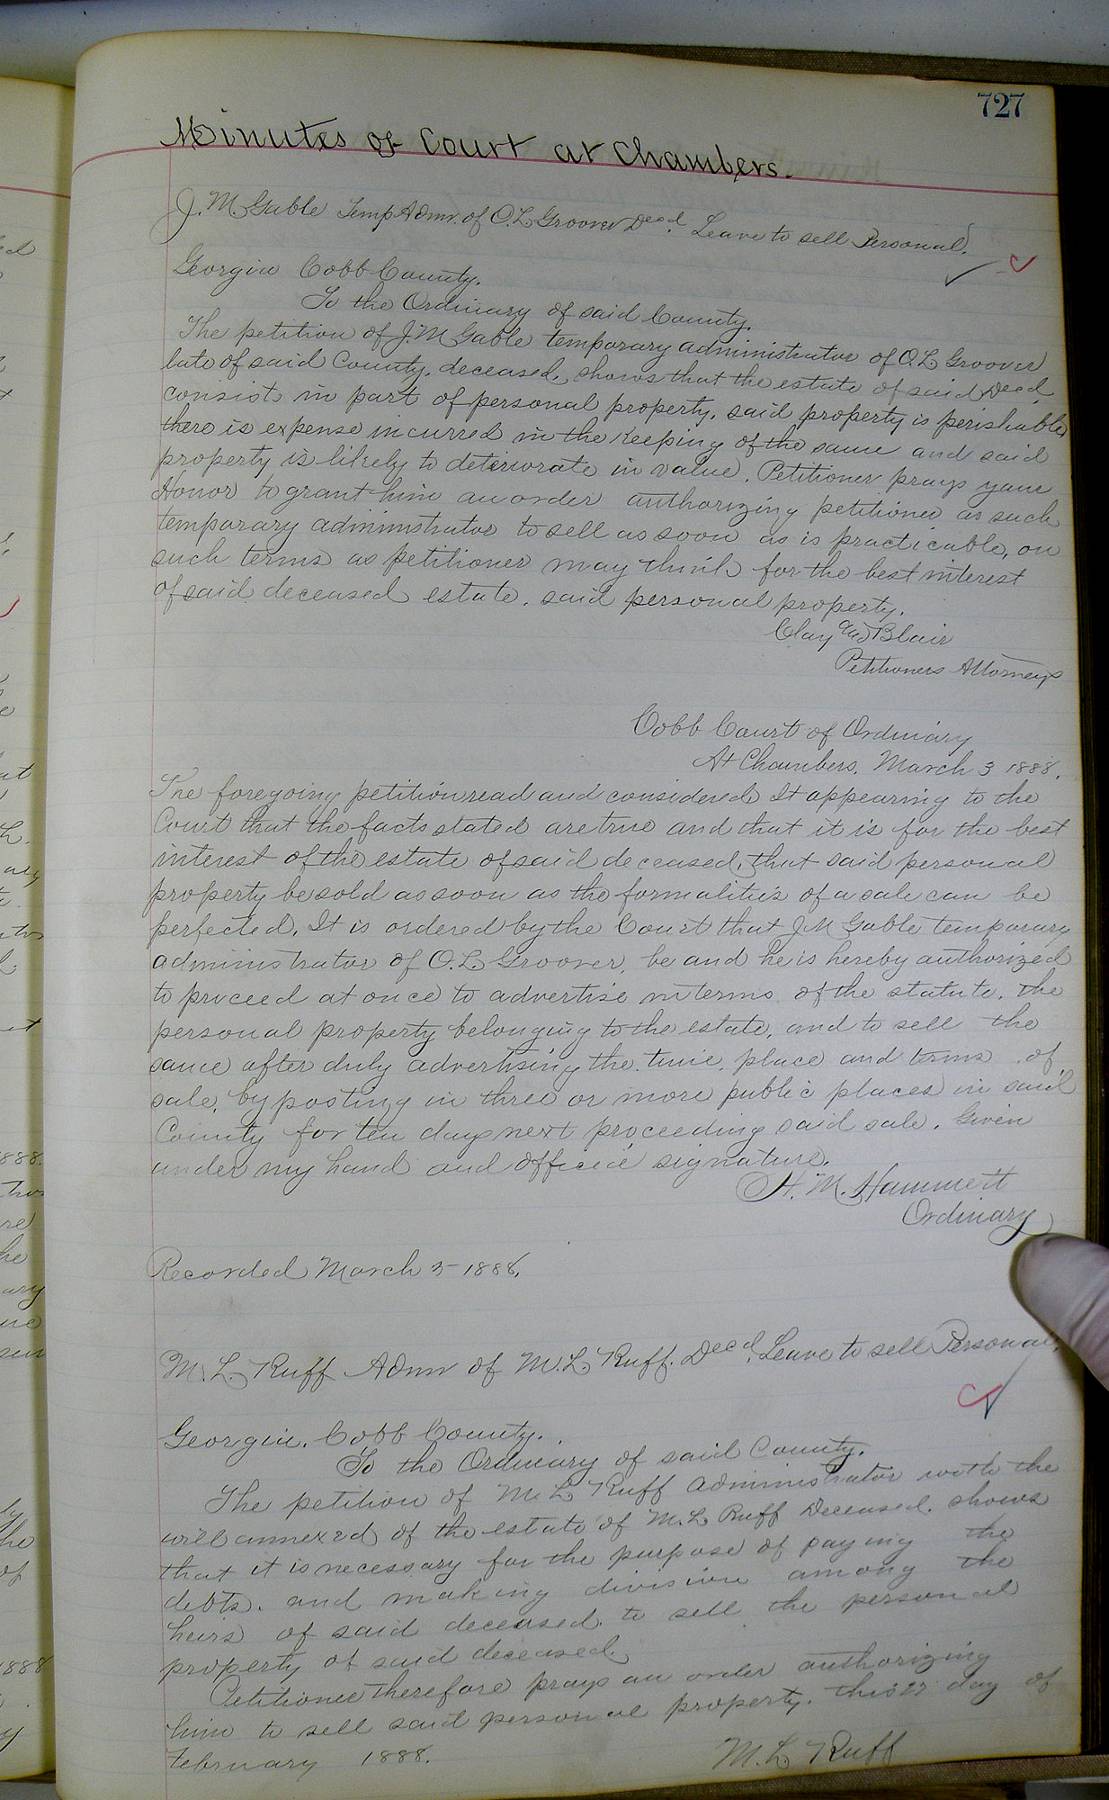 727
Minutes of Court at Chambers.
J. M. Gable Temp Admr. of O. L. Groover Decd. Leave to sell Personal.
Georgia Cobb County.
To the Ordinary of said County.
The petition of J. M Gable temporary administrator of O L Groover
late of said County, deceased, shows that the estate of said Decd.
consist in part of personal property, said property is perishable
there is expense incurred in the keeping of the same and said
property is likely to deteriorate in value. Petitioner prays your
Honor to grant him an order authorizing petitioner as such
temporary administrator to sell as soon as is practicable, on
such terms as petitioner may think for the best interest
of said deceased estate, said personal property.
Clay and Blair
Petitioners Attorneys
Cobb Court of Ordinary
At Chambers, March 3 1888.
The foregoing petition read and considered It appearing to the
Court that the facts stated are true and that it is for the best
interest of the estate of said deceased, that said personal
property be sold as soon as the formalities of a sale can be
perfected. It is ordered by the Court that J M Gable temporary
administrator of O. L. Groover, be and he is hereby authorized
to proceed at once to advertise in terms of the statute, the
personal property belonging to the estate, and to sell the
same after duly advertising the time, place and terms of
sale, by posting in three or more public places in said
County for ten days next proceeding said sale. Given
under my hand and official signature.
H. M. Hammett
Ordinary
Recorded March 5 1888.
M. L. Ruff Admr of M. L. Ruff. Decd. Leave to sell Personal.
Georgia. Cobb County.
To the Ordinary of said County.
The petition of M. L Ruff administrator with the
will annexed of the estate of M. L Ruff Deceased. shows
that it is necessary for the purpose of paying the
debts. and making division among the
heirs of said deceased. to sell the personal
property of said deceased.
Petitioner therefore prays an order authorizing
him to sell said personal property. this 27 day of
February 1888.
M. L. Ruff